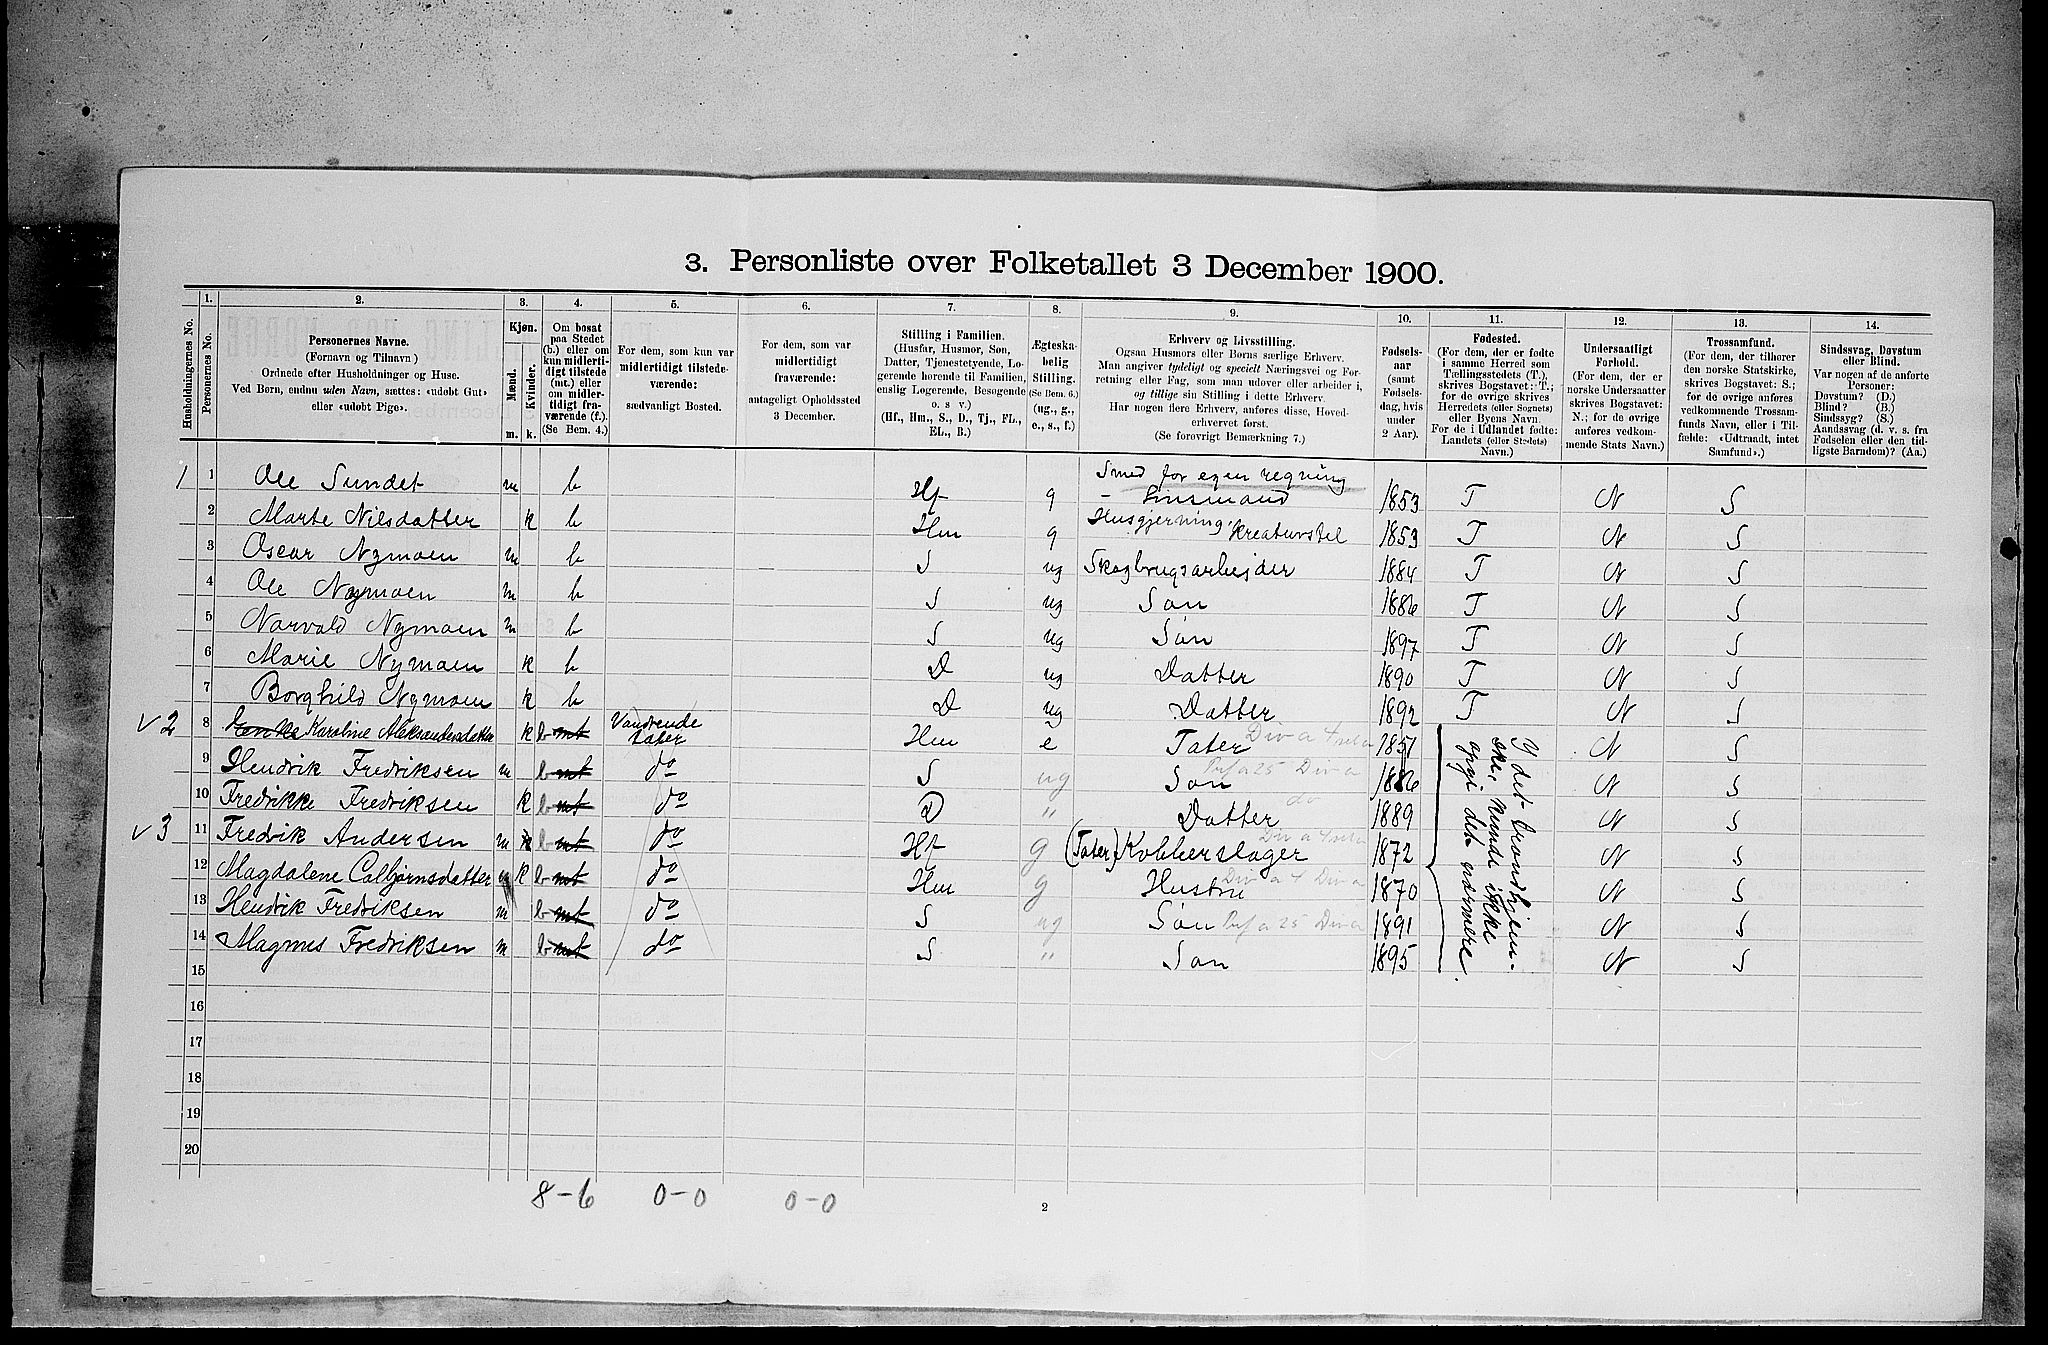 3. Personliste over Folketallet 3 December 1900.
Husholdningernes No.
1. Personernes No.
2. Personernes Navne.
(Fornavn og Tilnavn)
Ordnede efter Husholdninger og Huse.
Ved Børn, endnu uden Navn, sættes: «udøbt Gut»
eller «udøbt Pige».
3. Kjøn.
Mænd. m.
Kvinder. k.
4. Om bosat
paa Stedet
(b.) eller om
kun midlerti-
digt tilstede
(mt.) eller
om midler-
tidigt fra-
værende (f.).
(Se Bem. 4.)
5. For dem, som kun var
midlertidigt tilstede-
værende:
sædvanligt Bosted.
6. For dem, som var
midlertidigt
fraværende:
antageligt Opholdssted
3 December.
7. Stilling i Familien.
(Husfar, Husmor, Søn,
Datter, Tjenestetyende, Lo-
gerende hørende til Familien,
enslig Logerende, Besøgende
o. s v.)
(Hf., Hm., S., D., Tj., FL.,
EL., B.)
8. Ægteska-
belig
Stilling.
(Se Bem. 6.)
(ug., g.,
e., s., f.)
9. Erhverv og Livsstilling.
Ogsaa Husmors eller Børns særlige Erhverv.
Man angiver tydeligt og specielt Næringsvei og For-
retning eller Fag, som man udøver eller arbeider i,
og tillige sin Stilling i dette Erhverv.
Har nogen flere Erhverv, anføres disse, Hoved-
erhvervet først.
(Se forøvrigt Bemærkning 7.)
10. Fødsels-
aar
(samt
Fødsels-
dag, hvis
under
2 Aar).
11. Fødested.
(For dem, der er fødte
i samme Herred som
Tællingsstedets (T.),
skrives Bogstavet: T.;
for de øvrige skrives
Herredets (eller Sognets)
eller Byens Navn.
For de i Udlandet fødte:
Landets (eller Stedets)
Navn.)
12. Undersaatligt
Forhold.
(For dem, der er
norske Undersaatter
skrives Bogstavet:
N.; for de øvrige
anføres vedkom-
mende Stats Navn.)
13. Trossamfund.
(For dem, der tilhører
den norske Statskirke,
skrives Bogstavet: S.;
for de øvrige anføres
vedkommende Trossam-
funds Navn, eller i Til-
fælde: «Udtraadt, intet
Samfund».)
14. Sindssvag, Døvstum
eller Blind.
Var nogen af de anførte
Personer:
Døvstum? (D.)
Blind? (B.)
Sindssyg? (S.)
Aandssvag (d. v. s. fra
Fødselen eller den tid-
ligste Barndom)? (Aa.)
1 1 Ole Sundet m b Hf g Smed for egen regning - Husmand 1853 T N S
2 Marte Nilsdatter k b Hm g Husgjerning, Kreaturstel 1853 T N S
3 Oscar Nymoen m b S ug Skogbrugsarbejder 1884 T N S
4 Ole Nymoen m b S ug Søn 1886 T N S
5 Norvald Nymoen m b S ug Søn 1897 T N S
6 Marie Nymoen k b D ug Datter 1890 T N S
7 Borghild Nymoen k b D ug Datter 1892 T N S
v 2 8 Enke Karoline Aleksandersdatter k b mt Vandrende tater Hm e Tater 1851 N S
9 Hendrik Fredriksen m b mt do S ug Søn 1886 N S
10 Fredrikke Fredriksen k b mt do D " Datter 1889 N S
v 3 11 Fredrik Andersen m k b mt do Hf g (Tater) Kobberslager 1872 N S
12 Magdalene Colbjørnsdatter m k b mt do Hm g Hustru 1870 N S
13 Hendrik Fredriksen m b mt do S ug Søn 1891 N S
14 Magnus Fredriksen m b mt do S " Søn 1895 N S
I det trondhjem-
ske, kunde ikke
opgi det nærmere.
15
16
17
18
19
20
8-6 0-0 0-0
2